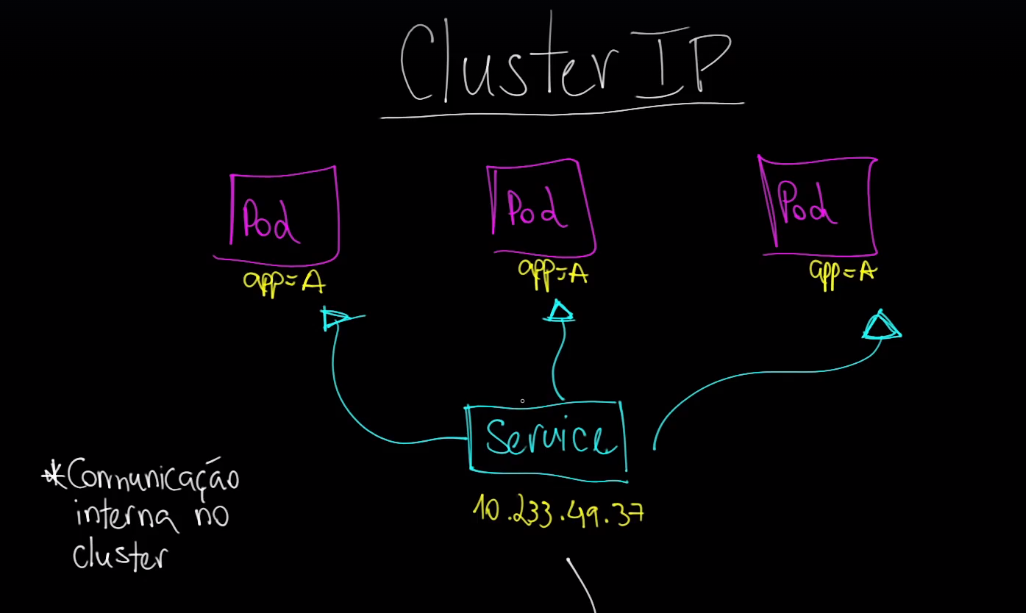 Cluster IP
Pod
Pod
Pod
app=A
app=A
app=A
Service
10.233.49.37
*Comunicação
interna no
cluster